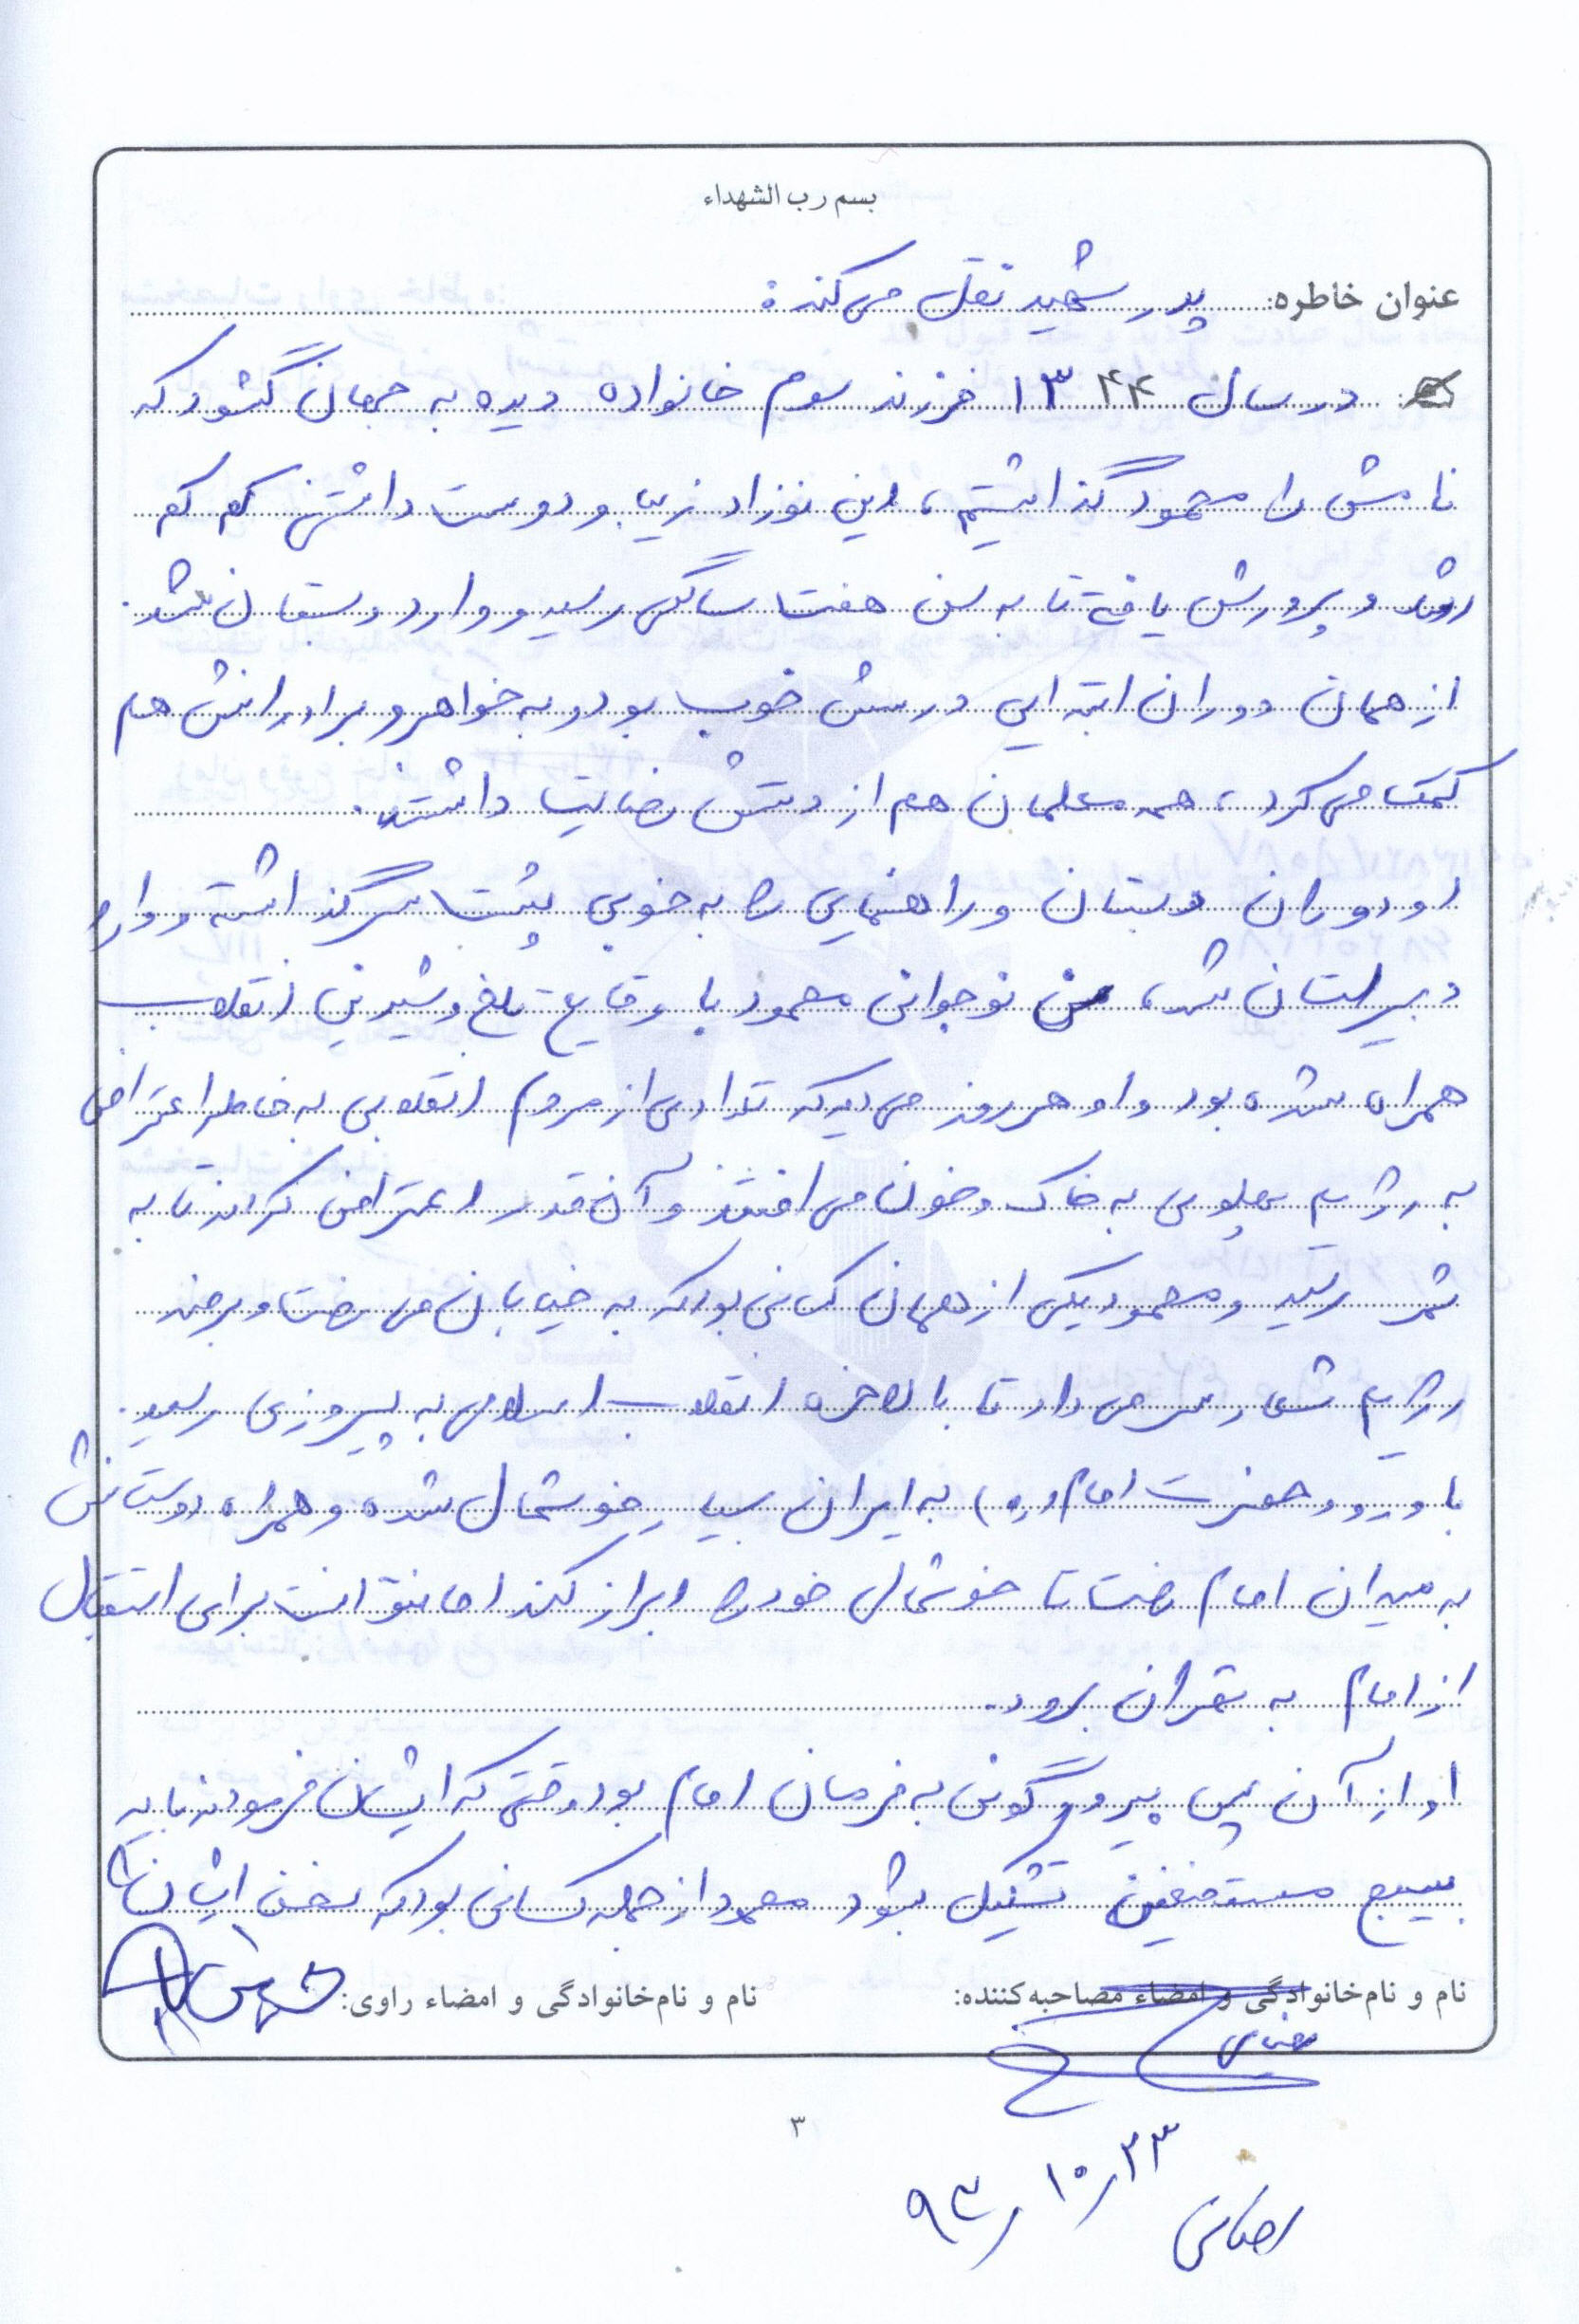 بسم رب الشهداء
عنوان خاطره: پدر شهید نقل می‌کند:
در سال ۱۳۴۴ فرزند سوم خانواده دیده به جهان گشود که
نامش را محمود گذاشتیم، این نوزاد زیبا و دوست داشتنی کم کم
رشد و پرورش یافت تا به سن هفت سالگی رسید و وارد دبستان شد.
از همان دوران ابتدایی درسش خوب بود و به خواهر و برادرانش هم
کمک می‌کرد، همه معلمان هم از دستش رضایت داشتند.
او دوران دبستان و راهنمایی را به خوبی پشت سر گذاشته و وارد
دبیرستان شد، سن نوجوانی محمود با وقایع تلخ و شیرین انقلاب
همراه شده بود و او هر روز می‌دید که تعدادی از مردم انقلابی به خاطر اعتراض
به رژیم پهلوی به خاک و خون می‌افتند و آن قدر اعتراض کردند تا به
ثمر رسید و محمود یکی از همان کسانی بود که به خیابان می‌رفت و بر ضد
رژیم شعار سر می‌داد تا بالاخره انقلاب اسلامی به پیروزی رسید.
با ورود حضرت امام (ره) به ایران بسیار خوشحال شده و همراه دوستانش
به میدان امام رفت تا خوشحالی خود را ابراز کند اما نتوانست برای استقبال
از امام به تهران برود.
او از آن پس پیرو و گوش به فرمان امام بود وقتی که ایشان فرمودند باید
بسیج مستضعفین تشکیل بشود محمود از جمله کسانی بود که سخن ایشان را
نام و نام‌خانوادگی و امضاء مصاحبه‌کننده:
نام و نام‌خانوادگی و امضاء راوی:
۳
۹۳/۱۰/۲۳